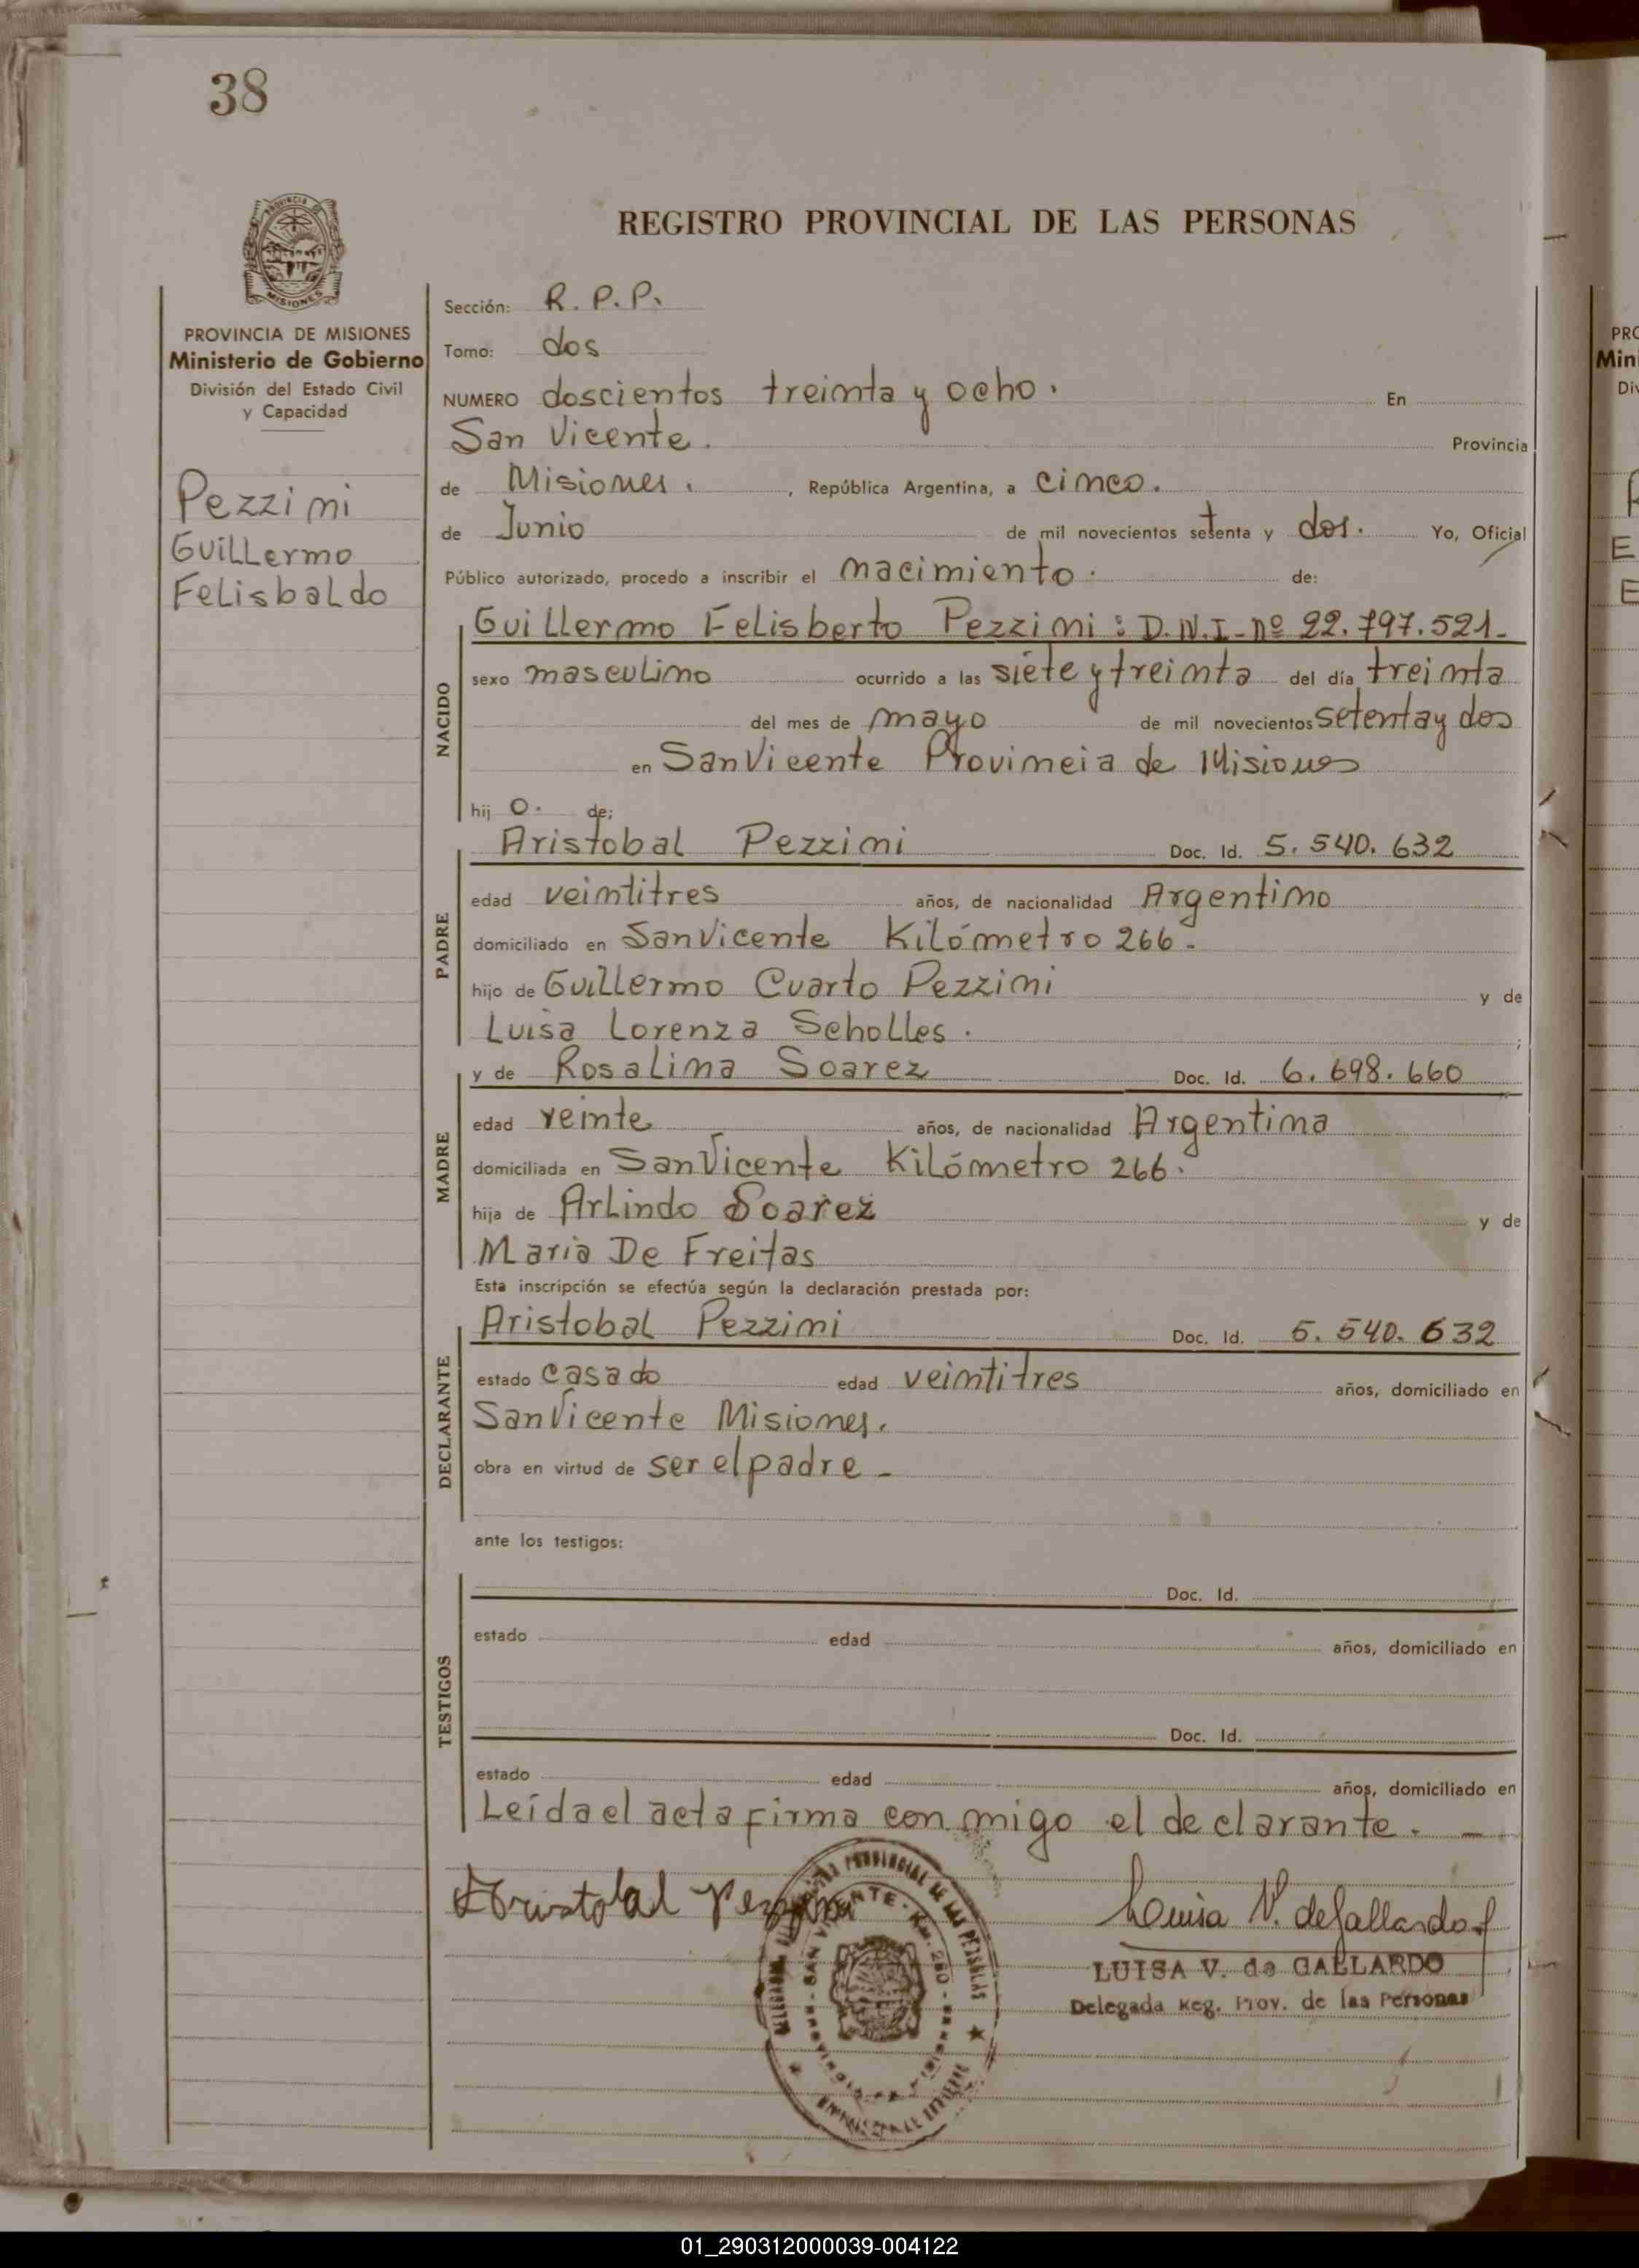 38
REGISTRO PROVINCIAL DE LAS PERSONAS
PROVINCIA
MISIONES
PROVINCIA DE MISIONES
Ministerio de Gobierno
División del Estado Civil
y Capacidad
Pezzini
Guillermo
Felisbaldo
Sección: R. P. P.
Tomo: dos
NUMERO doscientos treinta y ocho. En
San Vicente. Provincia
de Misiones. , República Argentina, a cinco.
de Junio de mil novecientos setenta y dos. Yo, Oficial
Público autorizado, procedo a inscribir el nacimiento. de:
NACIDO
Guillermo Felisberto Pezzini: D.N.I-Nº 22.797.521-
sexo masculino ocurrido a las siete y treinta del día treinta
del mes de mayo de mil novecientos setenta y dos
en San Vicente Provincia de Misiones
hij o. de;
PADRE
Aristobal Pezzini Doc. Id. 5.540.632
edad veintitres años, de nacionalidad Argentino
domiciliado en San Vicente Kilómetro 266.
hijo de Guillermo Cuarto Pezzini y de
Luisa Lorenza Scholles. ;
MADRE
y de Rosalina Soarez Doc. Id. 6.698.660
edad veinte años, de nacionalidad Argentina
domiciliada en San Vicente Kilómetro 266.
hija de Arlindo Soarez y de
Maria De Freitas
Esta inscripción se efectúa según la declaración prestada por:
DECLARANTE
Aristobal Pezzini Doc. Id. 5.540.632
estado casado edad veintitres años, domiciliado en
San Vicente Misiones.
obra en virtud de ser el padre -
ante los testigos:
TESTIGOS
Doc. Id.
estado edad años, domiciliado en
Doc. Id.
estado edad años, domiciliado en
Leída el acta firma con migo el declarante. -
Aristobal Pezzini
PROVINCIAL DE LAS PERSONAS
SAN VICENTE - Km. 260 -
Luisa V. de Gallardo
LUISA V. de GALLARDO
Delegada Reg. Prov. de las Personas
PRO
Min
Div
E
E
01_290312000039-004122